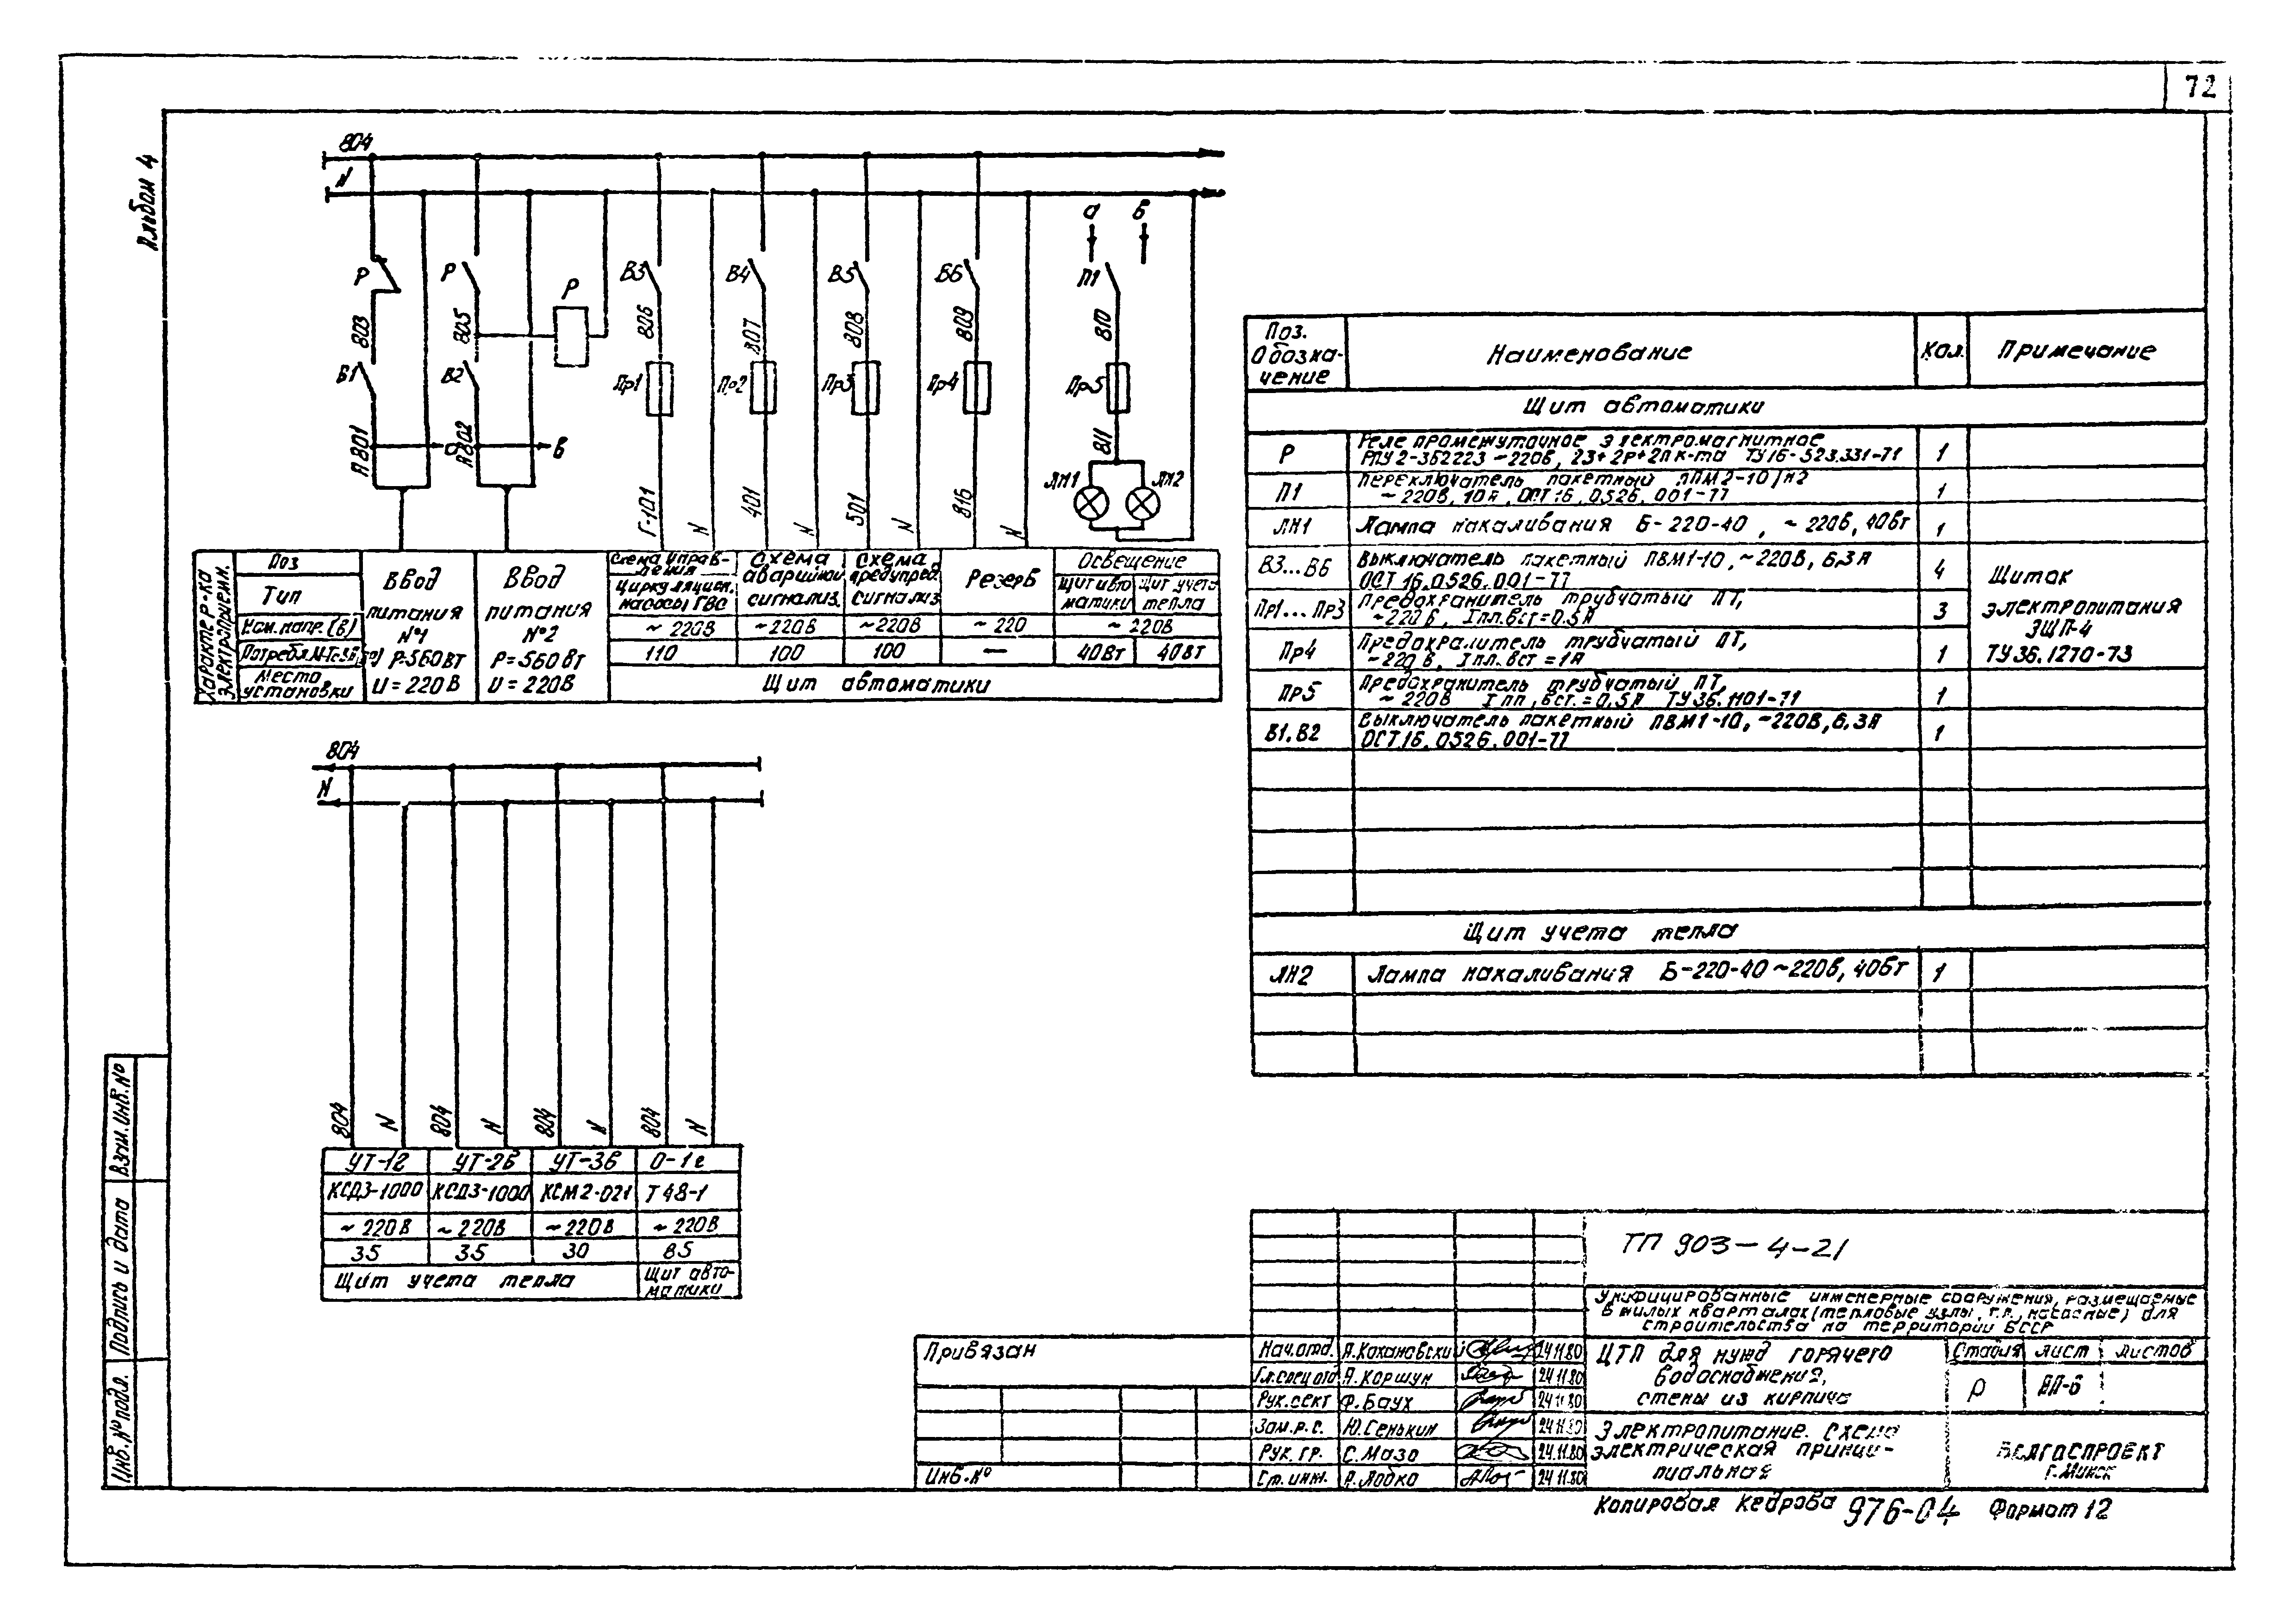 72
Альбом 4
804
N
а
б
Р
Р
Р
В3
В4
В5
В6
П1
803
805
806
807
808
809
810
В1
В2
Пр1
Пр2
Пр3
Пр4
Пр5
А801
А802
В
811
ЛН1
ЛН2
Г-101
N
401
N
501
N
816
N
Характер-ка электроприемн.
Поз
Тип
Ном. напр. (В)
Место установки
Ввод питания №1 Р=560 Вт U = 220 В
Ввод питания №2 Р = 560 Вт U = 220 В
Схема управления циркуляцион. насосы ГВС
Схема аварийной сигнализ.
Схема предупред. сигнализ
Резерв
Освещение
Щит автоматики
Щит учета тепла
~ 220В
~220В
~220В
~ 220
~ 220В
110
100
100
—
40Вт
40Вт
Щит автоматики
804
N
804
N
804
N
804
N
804
N
УТ-1г
УТ-2б
УТ-3в
О-1е
КСД3-1000
КСД3-1000
КСМ2-021
Т48-1
~ 220В
~ 220В
~ 220В
~ 220В
35
35
30
85
Щит учета тепла
Щит автоматики
Поз. Обозначение
Наименование
Кол.
Примечание
Щит автоматики
Р
Реле промежуточное электромагнитное
РПУ2-362223 ~220В, 2З+2Р+2П к-та ТУ16-523.331-71
1
П1
Переключатель пакетный ППМ2-10/н2
~220В, 10А, ОСТ 16, 0.526, 001-77
1
ЛН1
Лампа накаливания Б-220-40, ~ 220В, 40Вт
1
В3...В6
Выключатель пакетный ПВМ1-10, ~220В, 6,3А
ОСТ 16. 0.526. 001-77
4
Пр1...Пр3
Предохранитель трубчатый ПТ,
~220В, Iпл.вст=0.5А
3
Пр4
Предохранитель трубчатый ПТ,
~220В, Iпл. вст = 1А
1
Щиток
электропитания
ЭЩП-4
ТУ36.1270-73
Пр5
Предохранитель трубчатый ПТ,
~ 220В Iпл, вст.=0,5А ТУ36.1101-71
1
В1. В2
Выключатель пакетный ПВМ1-10, ~220В, 6.3А
ОСТ.16. 0526. 001-77
1
Щит учета тепла
ЛН2
Лампа накаливания Б-220-40 ~220В, 40Вт
1
Взам. инв. №
Подпись и дата
Инв. № подл.
Привязан
Инв. №
ТП 903-4-21
Унифицированные инженерные сооружения, размещаемые
в жилых кварталах (тепловые узлы, т.п., насосные) для
строительства на территории БССР
Нач.отд. А.Кохановский 24.11.80
Гл.спец.отд А.Коршун 24.11.80
Рук.сект Ф.Баух 24.11.80
Зам.р.с. Ю.Сенькин 24.11.80
Рук. гр. С.Мазо 24.11.80
Ст. инж. А.Лобко 24.11.80
ЦТП для нужд горячего
водоснабжения,
стены из кирпича
Стадия лист листов
Р ВП-6
Электропитание. Схема
электрическая принци-
пиальная
Белгоспроект
г. Минск
Копировал Кедрова 976-04 Формат 12